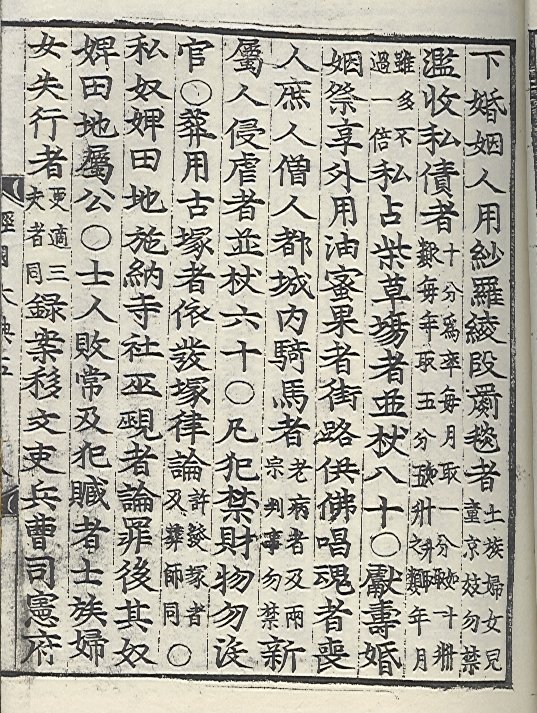 下婚姻人用紗羅綾段罽毯者士族婦女兒童京妓勿禁
濫收私債者十分爲率每月取一分如十升類每年取五分五升之類年月
雖多不過一倍私占柴草場者並杖八十○獻壽婚
姻祭享外用油蜜果者街路供佛唱魂者喪
人庶人僧人都城內騎馬者老病者及兩宗判事勿禁新
屬人侵虐者並杖六十○凡犯禁財物勿沒
官○葬用古塚者依發塚律論許發塚者及葬師同○
私奴婢田地施納寺社巫覡者論罪後其奴
婢田地屬公○士人敗常及犯贓者士族婦
女失行者更適三夫者同錄案移文吏兵曹司憲府
經國大典五